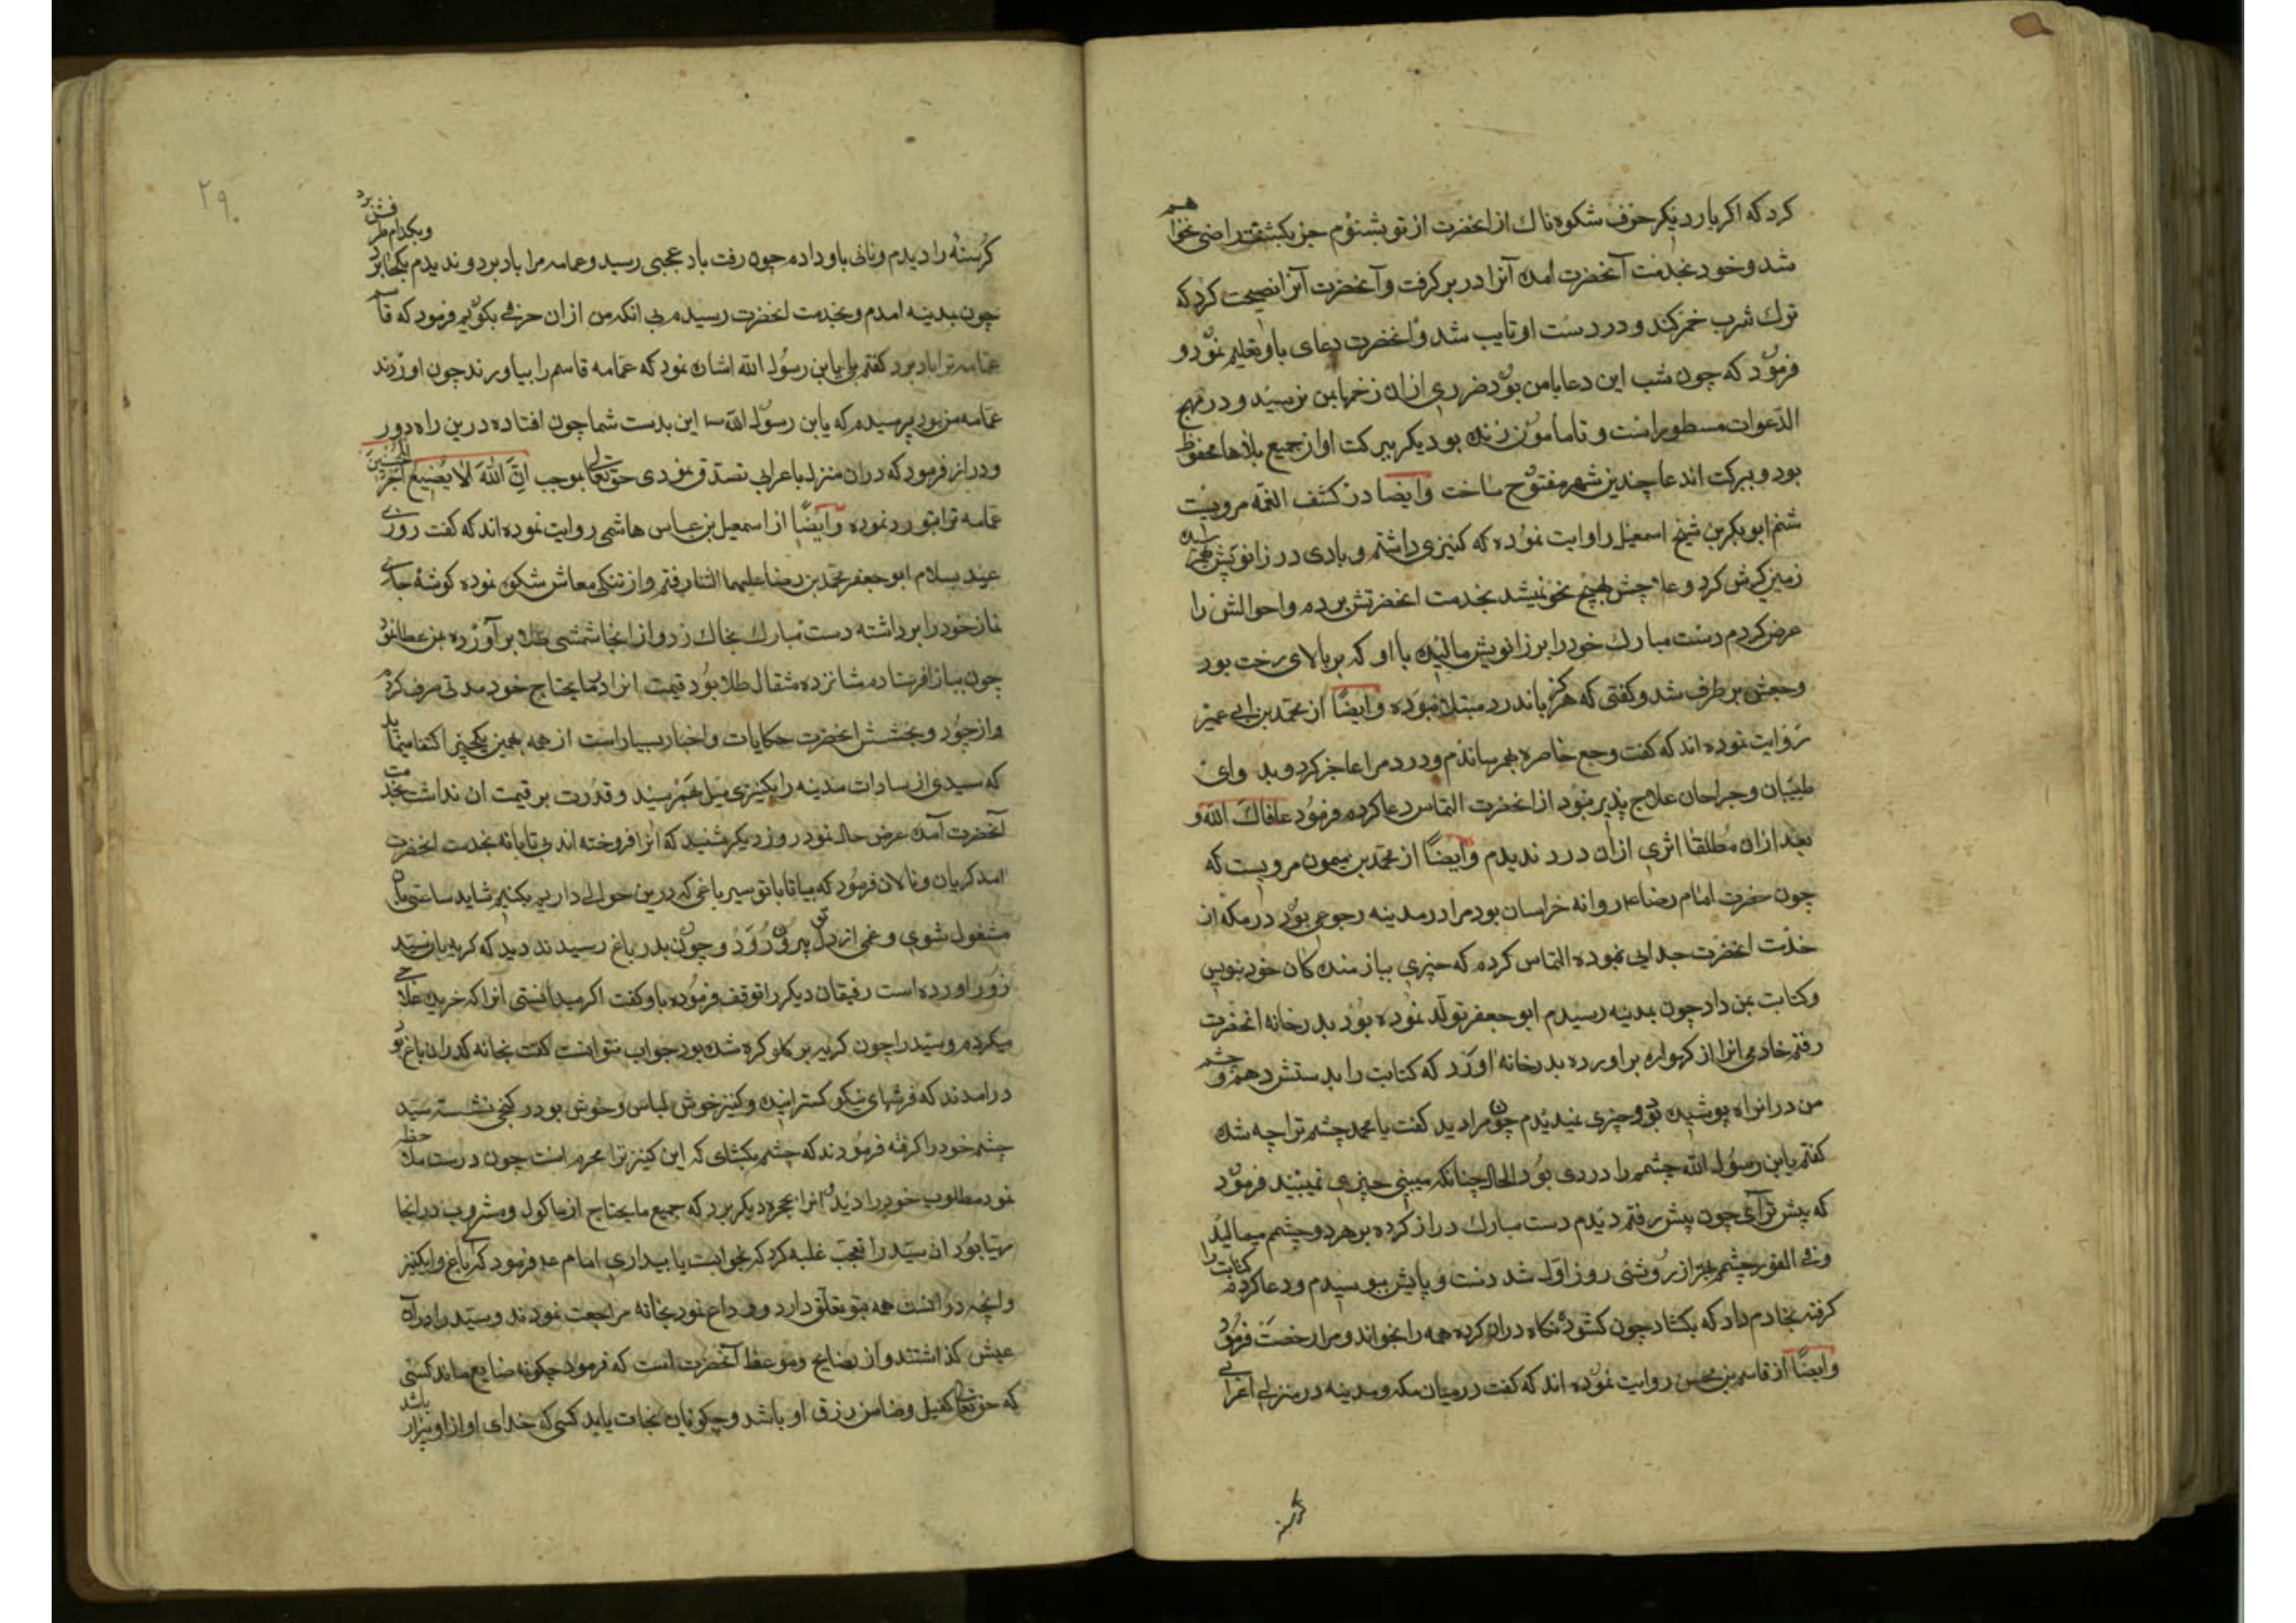 کرد که اکر بار دیکر حرف شکوه ناك از انحضرت از تو بشنوم جز بکشتنت راضی نخواهم
شد و خود بخدمت آنحضرت امده آنرا در بر کرفت و آنحضرت آنرا نصیحت کرد که
ترك شرب خمر کند و در دست او تایب شد و انحضرت دعای باو تعلیم نمود و
فرمود که چون شب این دعا با من بود ضرری ازان زخمها بمن نرسید و در مهج
الدعوات مسطور است و تا مامون زنده بود دیکر ببرکت او از جمیع بلاها محفوظ
بود و ببرکت اندعا چندین شهر مفتوح ساخت وایضا در کشف الغمه مرویست
ابو بکر بن اسمعیل روایت نموده که کنیزی داشتم و بادی در زانویش بهم رسیده
زمین کرش کرد و علاجش بهیچ نحو نمیشد بخدمت انحضرتش برده واحوالش را
عرض کردم دست مبارك خود را بر زانویش مالیده با او که بر بالای رخت بود
وجعش بر طرف شد و کفتی که هرکز باندرد مبتلا نبوده وایضًا از محمد بن ابی عمیر
روایت نموده اند که کفت وجع خاصره بهم رساندم و درد مرا عاجز کرد و بد وای
طبیبان وجراحان علاج پذیر نبود از انحضرت التماس دعا کرده فرمود عافاك الله و
بعد ازان مطلقا اثری ازان درد ندیدم وایضًا از محمد بن میمون مرویست که
چون حضرت امام رضا ع روانه خراسان بود مرا در مدینه رجوعی بود در مکه از
خدمت انحضرت جدایی نموده التماس کرده که چیزی بباز مندکان خود بنویس
وکتابت بمن داد چون بمدینه رسیدم ابو جعفر تولد نموده بود بدر خانه انحضرت
رفتم خادمی انرا از کهواره بر اورده بدر خانه اورد که کتابت را بدستش دهم و چشم
من در انراه پوشیده بود و چیزی نمیدیدم چون مرا دید کفت یا محمد چشم ترا چه شد
کفتم یابن رسول الله چشمم را دردی بود الحال چنانکه میبینی چیزی نمیبیند فرمود
که پیش تر آی چون پیش رفتم دیدم دست مبارك دراز کرده بر هر دو چشمم میمالید
و فی الفور چشمم از روشنی روز اول شد دست و پایش ببوسیدم و دعا کرده کتابت را
کرفته بخادم داد که بکشاد چون کشود نکاه دران کرده همه را بخواند و مرا رخصت فرمود
وایضًا از قاسم بن محسن روایت نموده اند که کفت در میان مکه و مدینه در منزلی اعرابی
کرسنه
۲۹۰
کرسنه را دیدم و نانی باو داده چون رفت باد عجبی رسید و عمامه مرا باد برد و ندیدم بکجا برد وبکدام طرفش برد
چون بمدینه امدم و بخدمت انحضرت رسیده بی انکه من ازان حرفی بکویم فرمود که قاسم
عمامه ترا باد برد کفتم بلی یابن رسول الله اشاره نمود که عمامه قاسم را بیاورند چون اوردند
عمامه من بود پرسیدم که یابن رسول الله این بدست شما چون افتاده درین راه دور
و دراز فرمود که دران منزل باعرابی تصدق نمودی حق تعالی بموجب انّ الله لا یضیع اجر المحسنین
عمامه ترا بتو رد نموده وایضًا از اسمعیل بن عباس هاشمی روایت نموده اند که کفت روز
عید بسلام ابو جعفر محمد بن رضا علیهما الثنا رفتم و از تنکی معاش شکوه نموده کوشه جای
نماز خود را برداشته دست مبارك بخاك زد و از انجا شمشی طلا بر آورده بمن عطا نمود
چون ببازار فرستادم شانزده مثقال طلا بود قیمت انرا بما یحتاج خود مدتی صرف کردم
و از جود و بخشش انحضرت حکایات و اخبار بسیار است از همه بهمین یکچیز اکتفا مینماید
که سیدی از سادات مدینه را بکنیزی میل بهم رسید و قدرت بر قیمت ان نداشت بخدمت
آنحضرت آمده عرض حال نمود روز دیکر شنید که انرا فروخته اند بی تابانه بخدمت انحضرت
امد کریان و نالان فرمود که بیا تا با تو سیر باغی که درین حوالی داریم بکنیم شاید ساعتی
مشغول شوی و غمی از دلت بیرون رود و چون بدر باغ رسیدند دید که کریه بار سید
زور اورده است رفیقان دیکر را توقف فرموده باو کفت اکر میدانستی انرا که خریده علاجی
میکردم و سید را چون کریه بر کلو کره شده بود جواب نتوانست کفت بخانه که دران باغ بود
درامدند که فرشهای نیکو کسترانیده و کنیز خوش لباس و خوش بو در کنجی نشسته سید
چشم خود را کرفته فرمودند که چشم بکشای که این کنیز ترا محرم است چون درست ملاحظه
نمود مطلوب خود را دید انرا بحجره دیکر برد که جمیع ما یحتاج از ماکول و مشروب در انجا
مهیا بود ان سید را تعجب غلبه کرد که بخوابست یا بیداری امام ع فرمود که باغ و کنیز
وانچه در انست همه بتو تعلق دارد و وداع نمود بخانه مراجعت نمودند و سید را در آن
عیش کذاشتند و از نصایح و موعظه آنحضرت است که فرمود چکونه ضایع ماند کسی
که حق تعالی کفیل و ضامن رزق او باشد و چکونه نجات یابد کسی که خدای او از او بیزار باشد